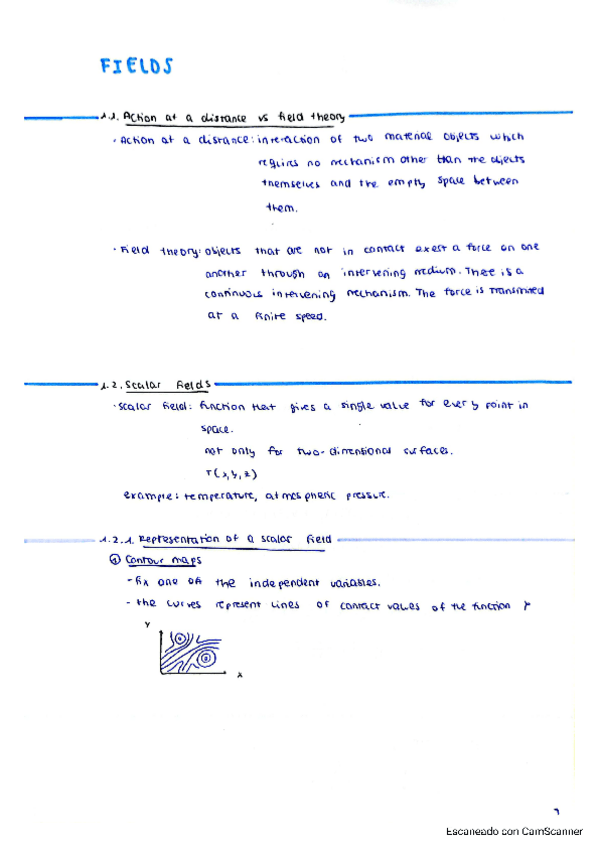 FIELDS
1.1. Action at a distance vs field theory
· Action at a distance: interaction of two material objects which
requires no mechanism other than the objects
themselves and the empty space between
them.
· Field theory: objects that are not in contact exert a force on one
another through an intervening medium. There is a
continuous intervening mechanism. The force is transmitted
at a finite speed.
1.2. Scalar fields
· Scalar field: function that gives a single value for every point in
space.
not only for two-dimensional surfaces.
T(x,y,z)
example: temperature, atmospheric pressure.
1.2.1. Representation of a scalar field
① Contour maps
- fix one of the independent variables.
- the curves represent lines of contact values of the function
Y
X
1
Escaneado con CamScanner